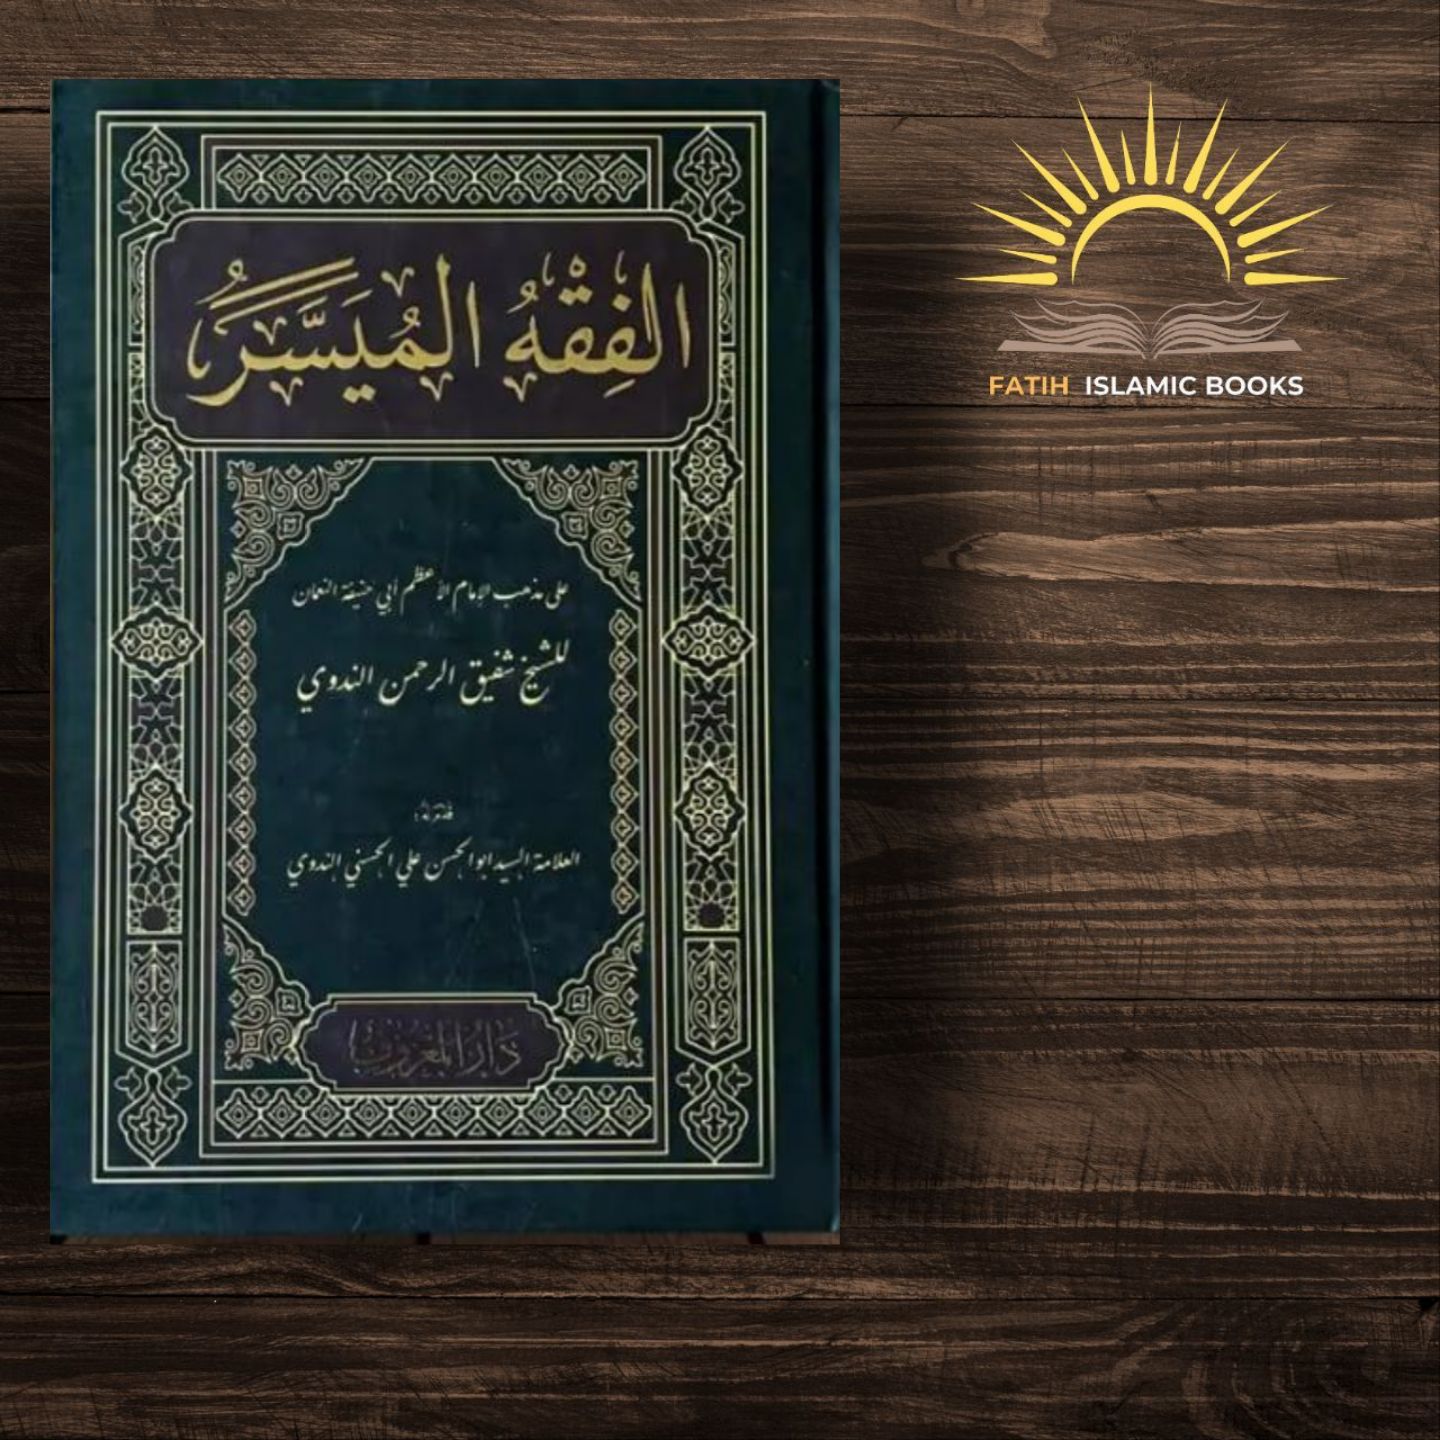 الفِقْهُ المُيَسَّرُ
على مذهب الإمام الأعظم أبي حنيفة النعمان
للشيخ شفيق الرحمن الندوي
قدم له
العلامة السيد ابو الحسن علي الحسني الندوي
دار المعروف
FATIH ISLAMIC BOOKS